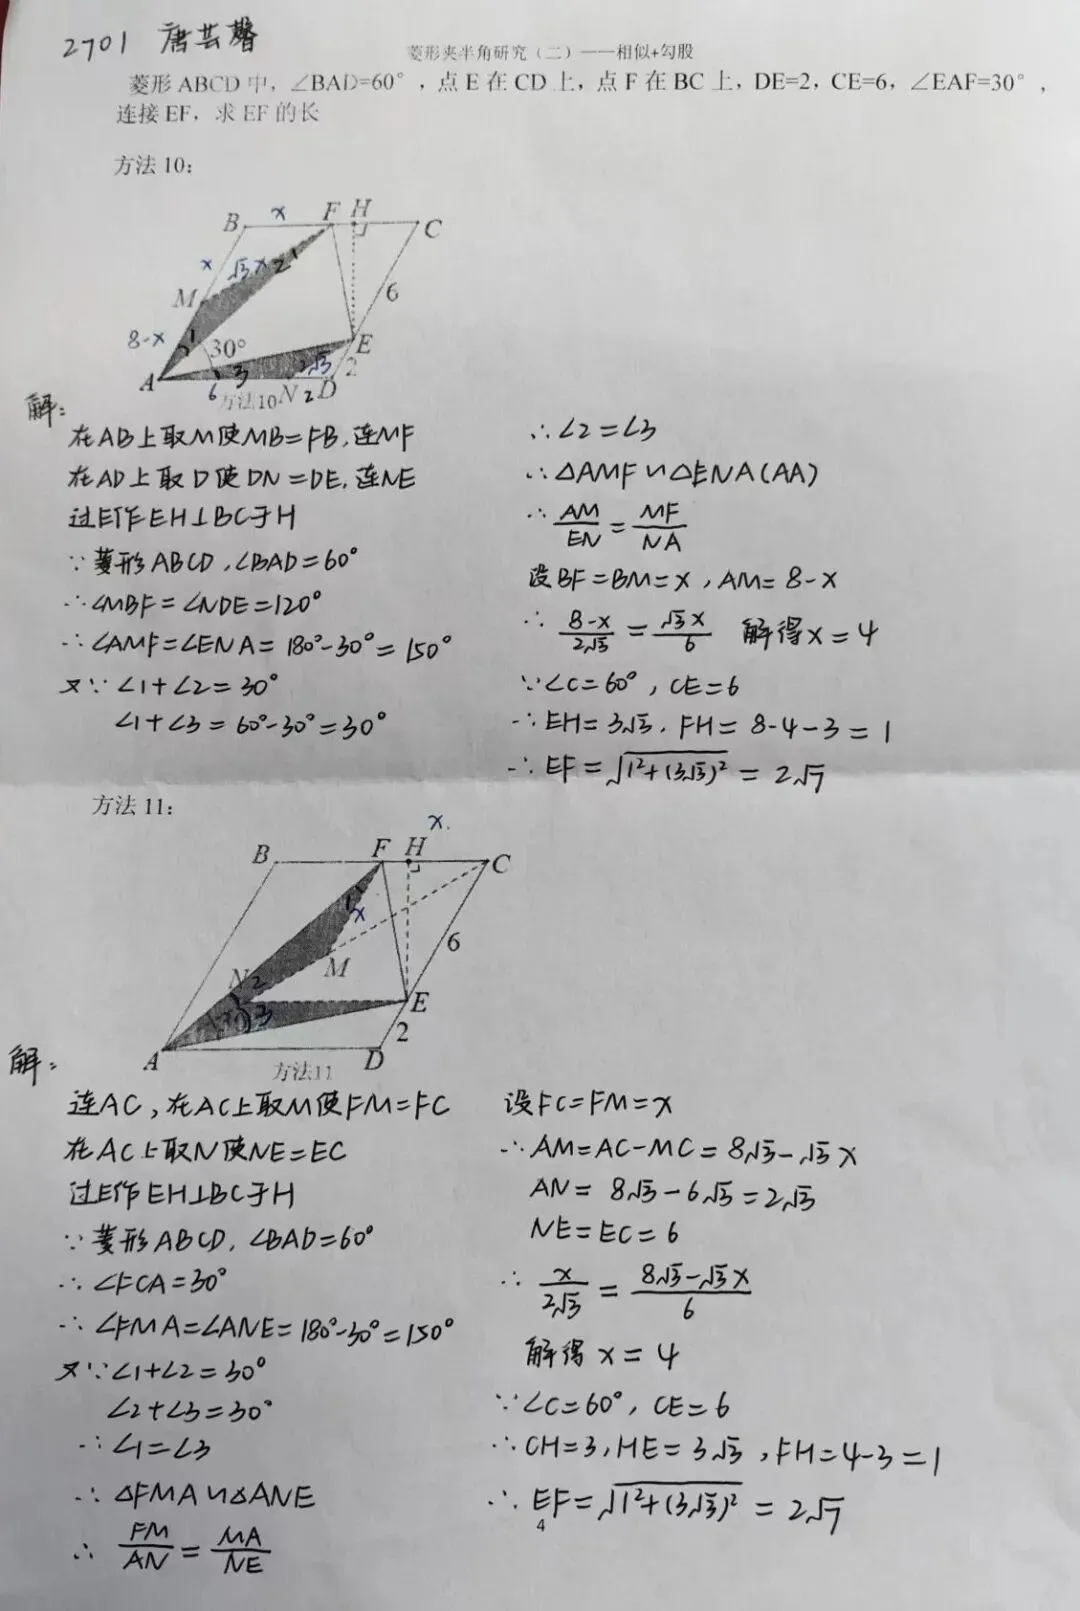 2701 唐芸馨
菱形夹半角研究（二）——相似+勾股
菱形 ABCD 中，∠BAD=60°，点 E 在 CD 上，点 F 在 BC 上，DE=2，CE=6，∠EAF=30°，
连接 EF，求 EF 的长
方法 10：
B x F H C
x √3x 2
M 6
8-x 1
30° E
3 2√3 2
A 6 N 2 D
方法10
解：
在AB上取M使MB=FB,连MF
在AD上取D使DN=DE,连NE
过E作EH⊥BC于H
∵菱形ABCD,∠BAD=60°
∴∠MBF=∠NDE=120°
∴∠AMF=∠ENA=180°-30°=150°
又∵∠1+∠2=30°
∠1+∠3=60°-30°=30°
∴∠2=∠3
∴△AMF∽△ENA(AA)
∴AM/EN=MF/NA
设BF=BM=x,AM=8-x
∴(8-x)/2√3=√3x/6 解得x=4
∵∠C=60°,CE=6
∴EH=3√3,FH=8-4-3=1
∴EF=√(1²+(3√3)²)=2√7
方法 11：
x
B F H C
1 x
6
N 2 M
3 E
2
A D
方法11
解：
连AC,在AC上取M使FM=FC
在AC上取N使NE=EC
过E作EH⊥BC于H
∵菱形ABCD,∠BAD=60°
∴∠FCA=30°
∴∠FMA=∠ANE=180°-30°=150°
又∵∠1+∠2=30°
∠2+∠3=30°
∴∠1=∠3
∴△FMA∽△ANE
∴FM/AN=MA/NE
设FC=FM=x
∴AM=AC-MC=8√3-√3x
AN=8√3-6√3=2√3
NE=EC=6
∴x/2√3=(8√3-√3x)/6
解得x=4
∵∠C=60°,CE=6
∴CH=3,HE=3√3,FH=4-3=1
∴EF=√(1²+(3√3)²)=2√7
4